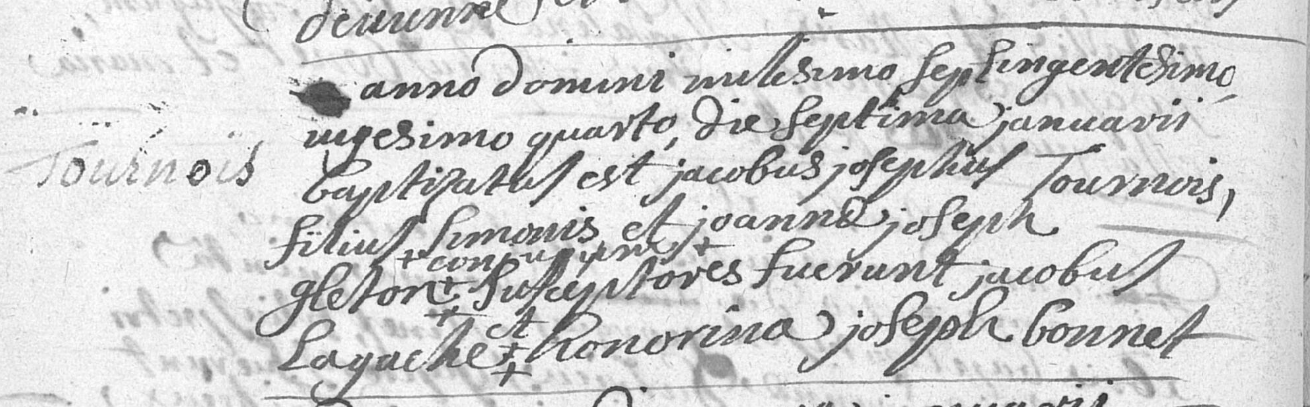 anno domini milesimo septingentesimo
vigesimo quarto, die septima januarii
Tournois
baptizatus est jacobus josephus Tournois,
filius simonis et joanna joseph
+ conjugum +
gleton + susceptores fuerunt jacobus
et
Lagache + honorina joseph bonnet